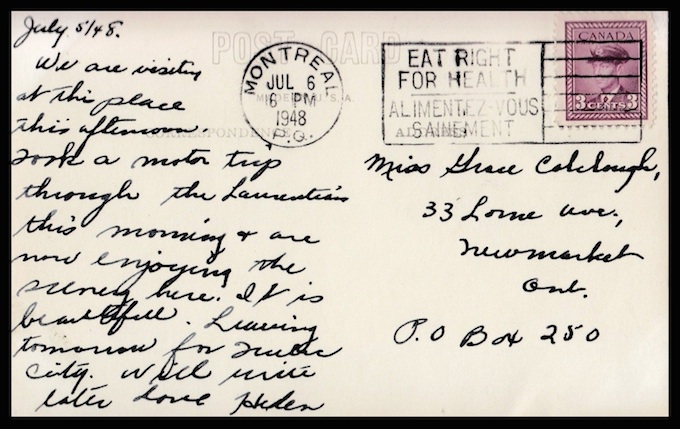 July 5/48.
We are visiting
at this place
this afternoon.
Took a motor trip
through the Laurentians
this morning & are
now enjoying the
scenery here. It is
beautiful. Leaving
tomorrow for
City. Will write
later Love Helen
POST CARD
CORRESPONDENCE
MADE IN U.S.A.
MONTREAL
JUL 6
6 PM
1948
P.Q.
EAT RIGHT
FOR HEALTH
ALIMENTEZ-VOUS
SAINEMENT
CANADA
3 CENTS 3
Miss Grace
33 Lorne Ave.,
Newmarket
Ont.
P.O Box 250